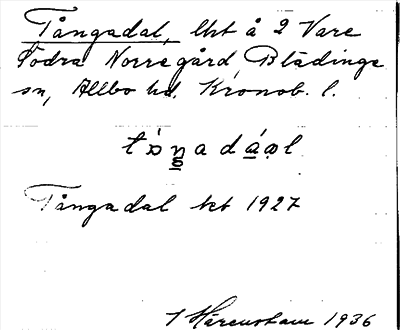 Tångadal, lht å 2 Vare
Södra Norregård, Blädinge
sn, Allbo hd. Kronob. l.
tɔ́ŋadáal
Tångadal kt 1927
Hårenstam 1936